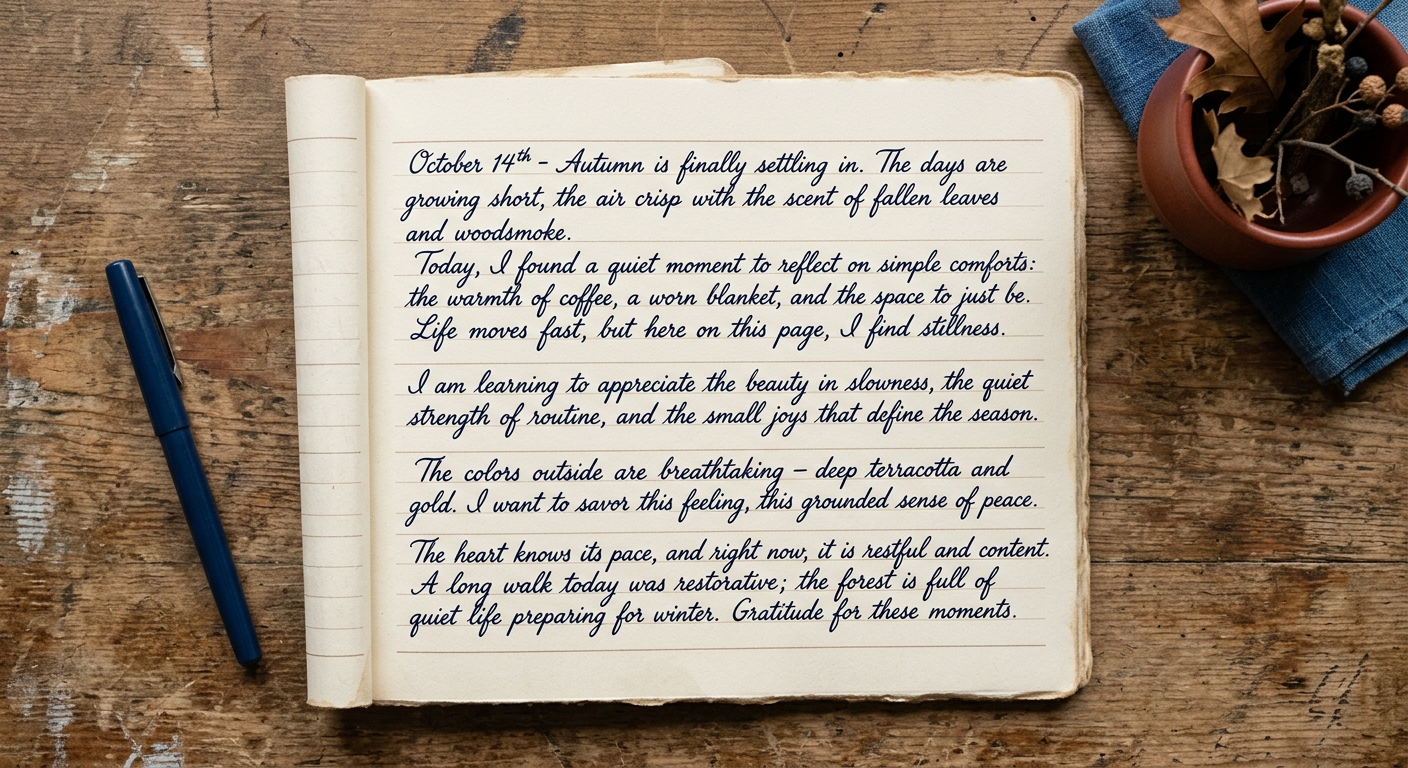 October 14th - Autumn is finally settling in. The days are
growing short, the air crisp with the scent of fallen leaves
and woodsmoke.
Today, I found a quiet moment to reflect on simple comforts:
the warmth of coffee, a worn blanket, and the space to just be.
Life moves fast, but here on this page, I find stillness.
I am learning to appreciate the beauty in slowness, the quiet
strength of routine, and the small joys that define the season.
The colors outside are breathtaking – deep terracotta and
gold. I want to savor this feeling, this grounded sense of peace.
The heart knows its pace, and right now, it is restful and content.
A long walk today was restorative; the forest is full of
quiet life preparing for winter. Gratitude for these moments.